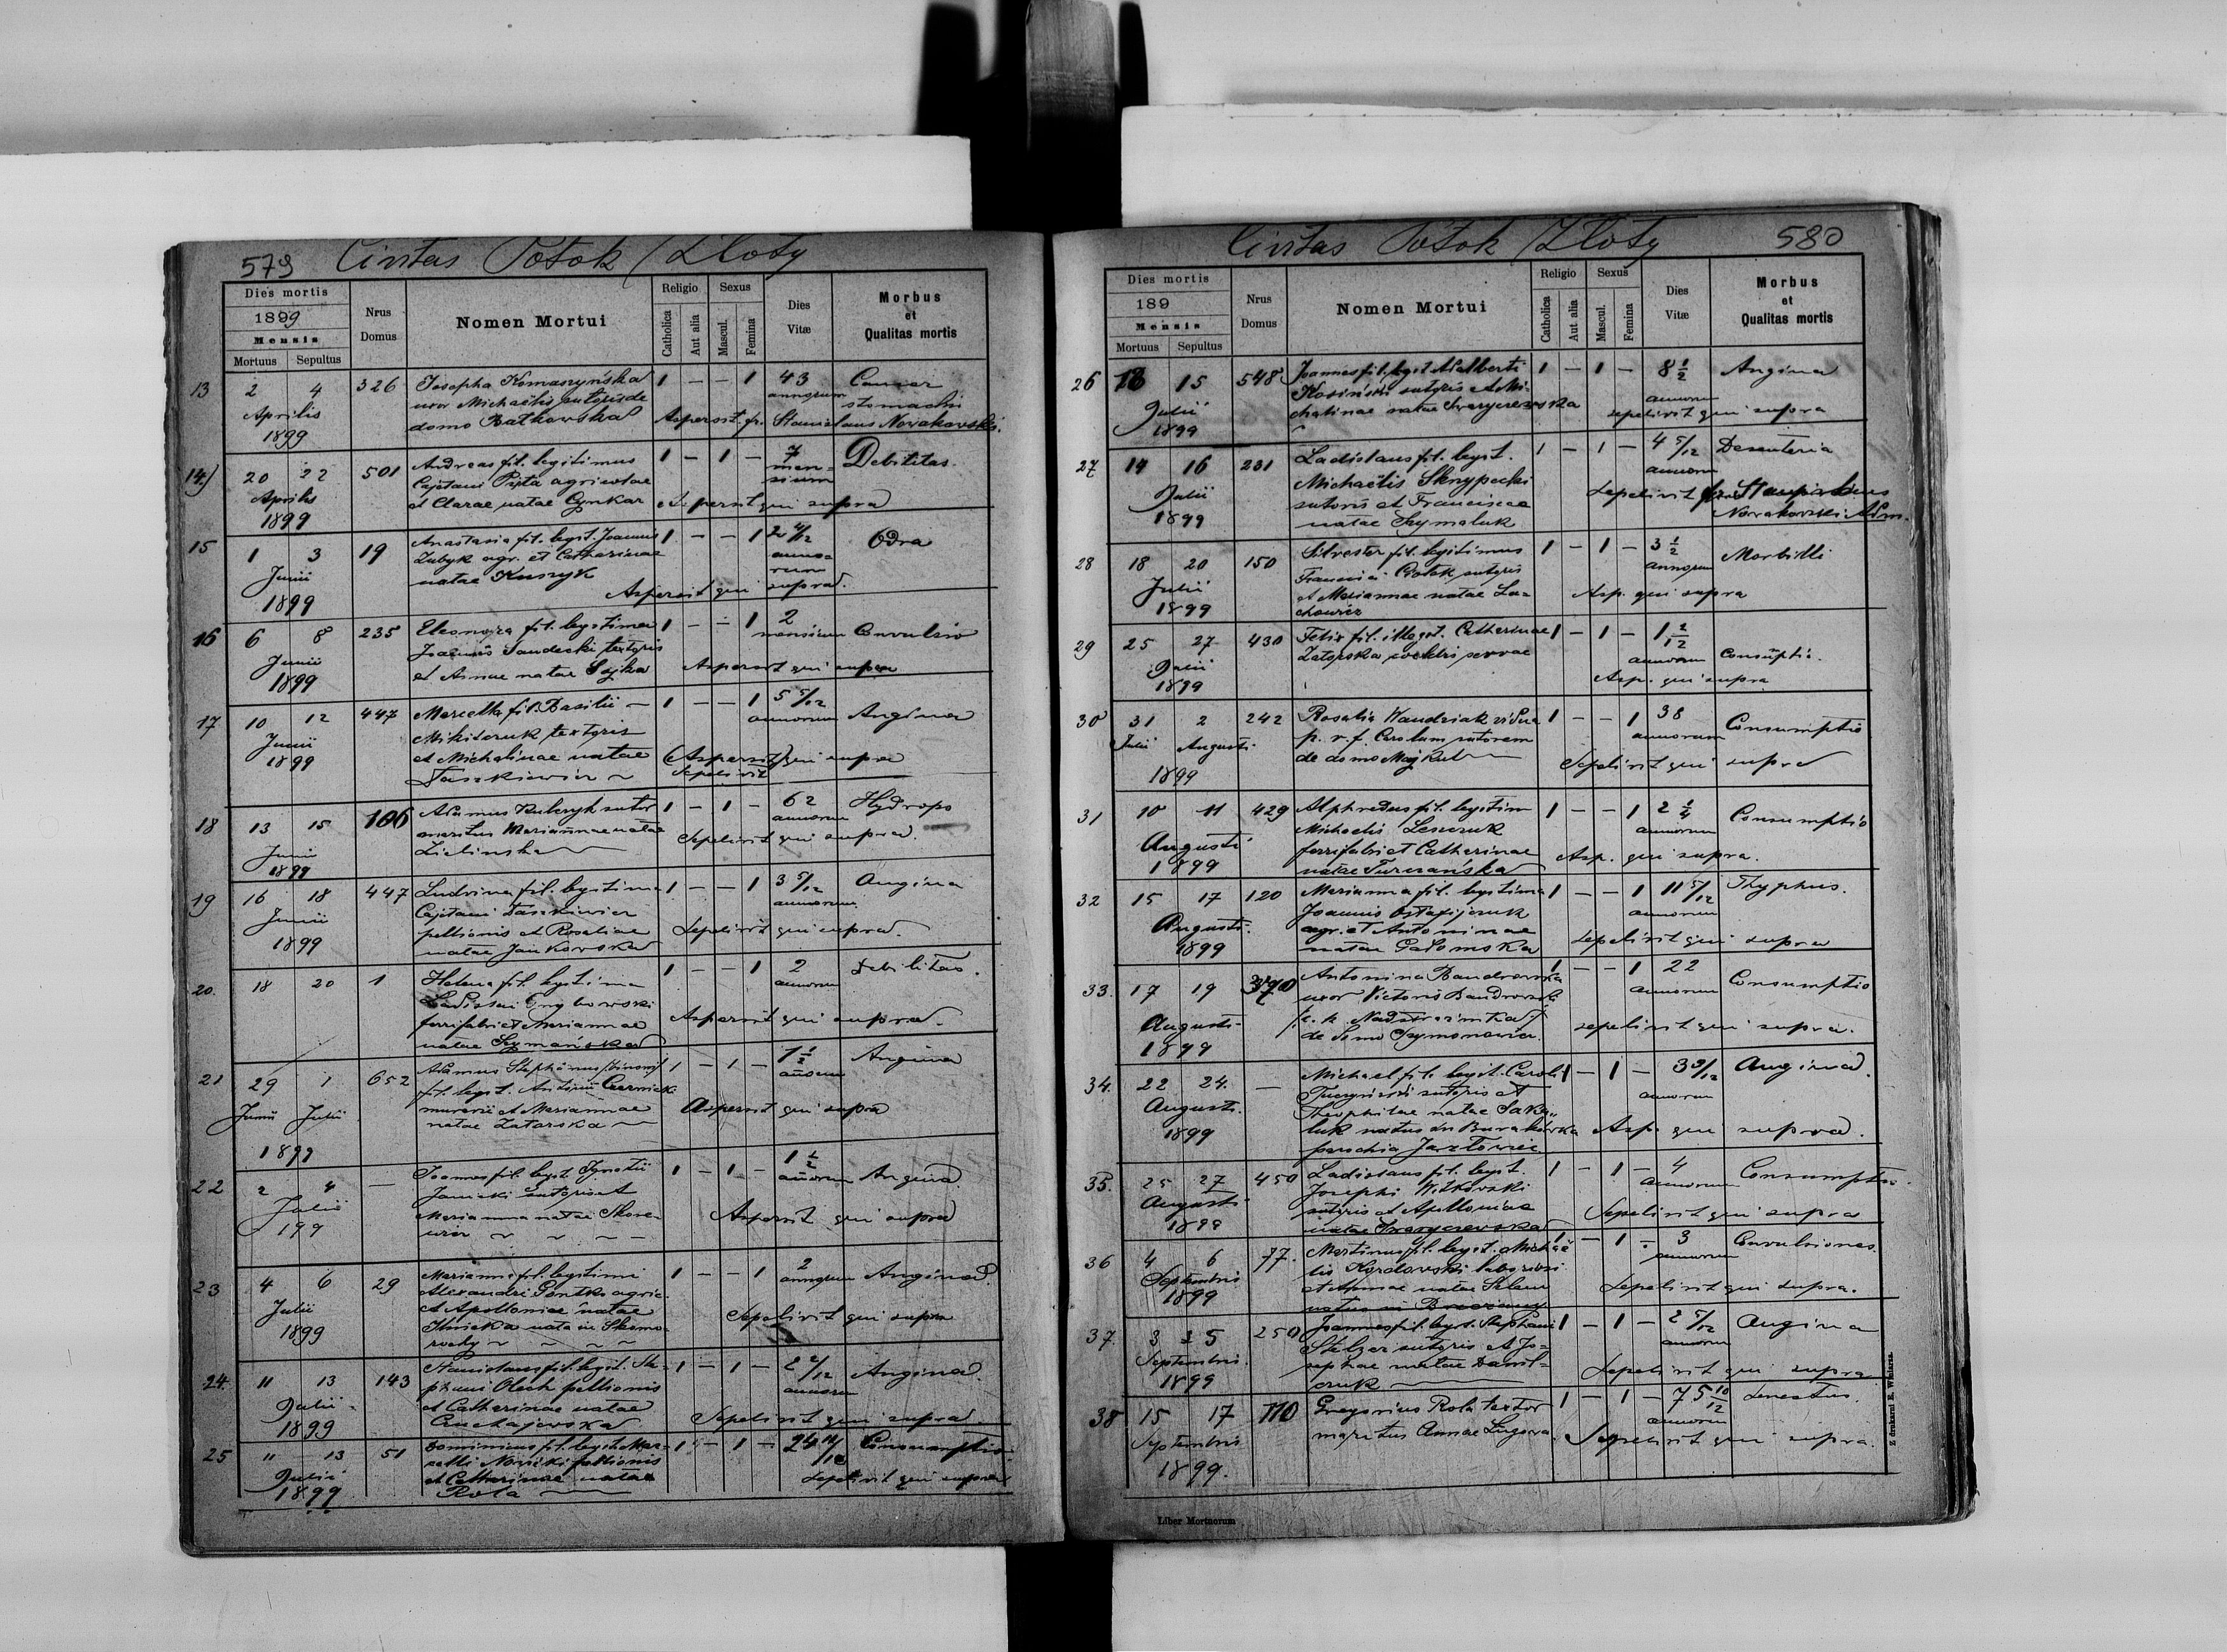 579 Civitas Potok Złoty
Dies mortis
1899
Mensis
Mortuus Sepultus
Nrus Domus
Nomen Mortui
Religio
Catholica
Aut alia
Sexus
Mascul.
Femina
Dies Vitæ
Morbus et Qualitas mortis
13 2 4 326 Josepha Komaszyńska 1 — — 1 43 Cancer
Aprilis uxor Michaëlis sutoris de annorum stomachi
1899 domo Batkowska Aspersit fr. Stanislaus Novakovski.
14) 20 22 501 Andreas fil. legitimus 1 — 1 — 7 Debilitas.
Aprilis Cajetani Pipta agricolae mensium
1899 et Clarae natae Cynkar Aspersit qui supra
15 1 3 19 Anastasia fil. legit. Joannis 1 — — 1 2 4/12 Odra
Junii Zubyk agr. et Catharinae annorum
1899 natae Kuszyk Aspersit qui supra.
16 6 8 235 Eleonora fil. legitima 1 — — 1 2 Convulsio
Junii Joannis Sandecki textoris mensium
1899 et Annae natae Sojka Aspersit qui supra
17 10 12 447 Marcella fil. Basilii — 1 — — 1 5 5/12 Angina
Junii Mikitaruk textoris annorum
1899 et Michalinae natae (Aspersit) qui supra
Taszkiewicz Sepelivit
18 13 15 106 Adamus Kuberyk sutor 1 — 1 — 62 Hydrops
Junii maritus Mariannae natae annorum
1899 Zielinska Sepelivit qui supra.
19 16 18 447 Ludvina fil. legitima 1 — — 1 3 5/12 Angina
Junii Cajetani Taszkiewicz annorum
1899 pellionis et Rosaliae Sepelivit qui supra.
natae Jankowska
20. 18 20 1 Helena fil. legitima 1 — — 1 2 Debilitas.
Ladislai Grybowski annorum
ferrifabri et Mariannae Aspersit qui supra.
natae Szymańska
21 29 1 652 Adamus Stephanus 1 — 1 — 1 1/2 Angina
Junii Julii fil. legit. Antonii Czernicki annorum
murarii et Mariannae Aspersit qui supra
1899 natae Zatorska
22 2 4 — Joannes fil. legit. Ignatii 1 — 1 — 1 1/2 Angina
Julii Janicki sutoris et annorum
199 Marianna natae Skorewicz Aspersit qui supra
23 4 6 29 Marianna fil. legitimi 1 — — 1 2 Angina.
Julii Alexandri Pentko agric. annorum
1899 et Apolloniae natae Sepelivit qui supra
Ilnicka nata in Skomorochy
24. 11 13 143 Stanislaus fil. legit. Ste- 1 — 1 — 2 2/12 Angina.
Julii phani Olech pellionis annorum
1899 et Catharinae natae Sepelivit qui supra.
Czuchajowska
25 11 13 51 Dominicus fil. legit. Mar- 1 — 1 — 24 Consumptio.
Julii celli Nowicki pellionis
1899 et Catharinae natae Sepelivit qui supra
Rola
Civitas Potok Złoty 580
Dies mortis
189
Mensis
Mortuus Sepultus
Nrus Domus
Nomen Mortui
Religio
Catholica
Aut alia
Sexus
Mascul.
Femina
Dies Vitæ
Morbus et Qualitas mortis
26 13 15 548 Joannes fil. legit. Adalberti 1 — 1 — 8 1/2 Angina
Julii Kosiński sutoris et Mi- annorum
1899 chalinae natae sepelivit qui supra
27 14 16 231 Ladislaus fil. legit. 1 — 1 — 4 5/12 Desenteria
Julii Michaëlis Skrypecki annorum
1899 sutoris et Franciscae Sepelivit Stanislaus
natae Szymaluk Novakovski Adm.
28 18 20 150 Silvester fil. legitimus 1 — 1 — 3 1/2 Morbilli
Julii Francisci Potok sutoris annorum
1899 et Mariannae natae La- Asp. qui supra
chowicz
29 25 27 430 Felix fil. illegit. Catherinae 1 — 1 — 1 1/2 Consumptio.
Julii Zatorska servae annorum
1899 Asp. qui supra
30 31 2 242 Rosalia Wandziak vidua 1 — — 1 38 Consumptio
Julii Augusti p. r. f. Carolum sutorem annorum
1899 de domo Majkut Sepelivit qui supra
31 10 11 429 Alphredus fil. legitim 1 — — 1 2 1/4 Consumptio
Augusti Michaelis Leszczuk annorum
1899 ferrifabri et Catherinae Asp. qui supra.
natae Turczańska
32 15 17 120 Marianna fil. legitima 1 — — 1 11 5/12 Thyphus.
Augusti Joannis Ostafijczuk annorum
1899 agr. et Antoninae sepelivit qui supra
natae Gadomska
33. 17 19 370 Antonina Bandrowska 1 — — 1 22 Consumptio
Augusti uxor Victoris Bandrowski annorum
1899 c. k. Nadstraznika sepelivit qui supra.
de domo Szymonowicz.
34. 22 24. — Michael fil. legit. Caroli 1 — 1 — 3 9/12 Angina.
Augusti Tuczyński sutoris et annorum
1899 Theophilae natae Saka-
luk natus in Burakówka Asp. qui supra.
parochia Jazłowiec
35. 25 27 450 Ladislaus fil. legit. 1 — 1 — 4 Consumptio.
Augusti Josephi Witkowski annorum
1899 sutoris et Apolloniae Sepelivit qui supra
natae
36 4 6 77. Martinus fil. legit. Michaë- 1 — 1 — 3 Convulsiones.
Septembris lis Kordowski annorum
1899 et Annae natae Sepelivit qui supra.
natus in
37. 3 5 250 Joannes fil. legit. Stephani 1 — 1 — 2 5/12 Angina
Septembris Stelzer sutoris et Jo- annorum
1899 sephae natae Danil- Sepelivit qui supra
czuk
38 15 17 110 Gregorius Rola textor 1 — 1 — 75 10/12 Senectus.
Septembris maritus Annae Lugova annorum
1899. Sepelivit qui supra.
Liber Mortuorum
Z drukarni E. Winiarza.